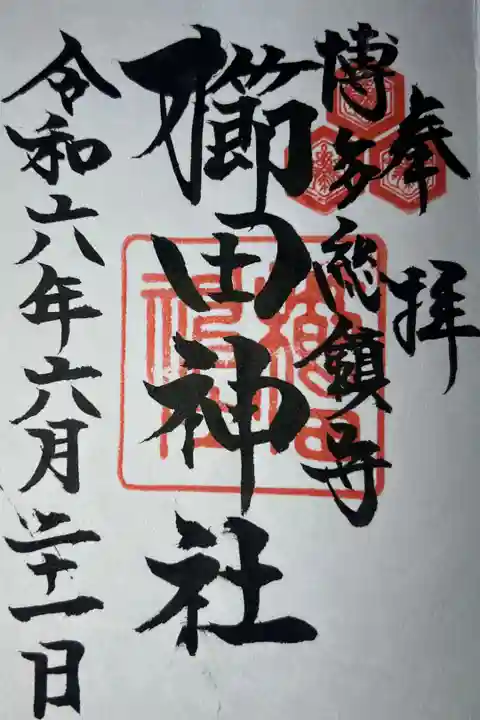 奉拝
博多総鎮守
櫛田神社
令和六年六月二十一日
櫛田神社